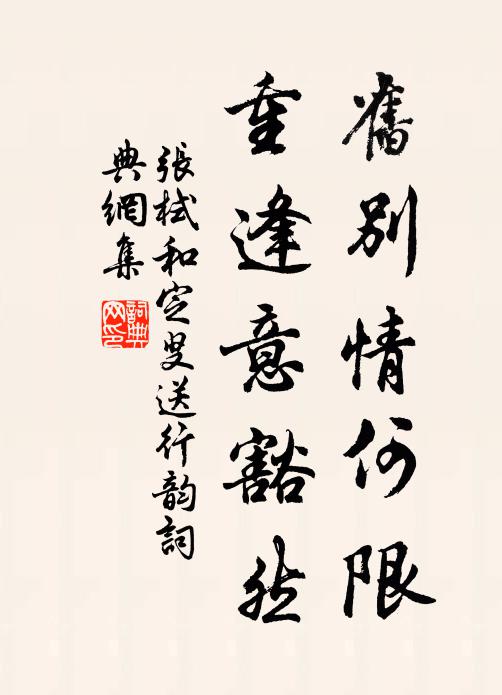 舊別情何限
重逢意豁然
張栻和定叟送行韵詞
典網集
詞典
网印